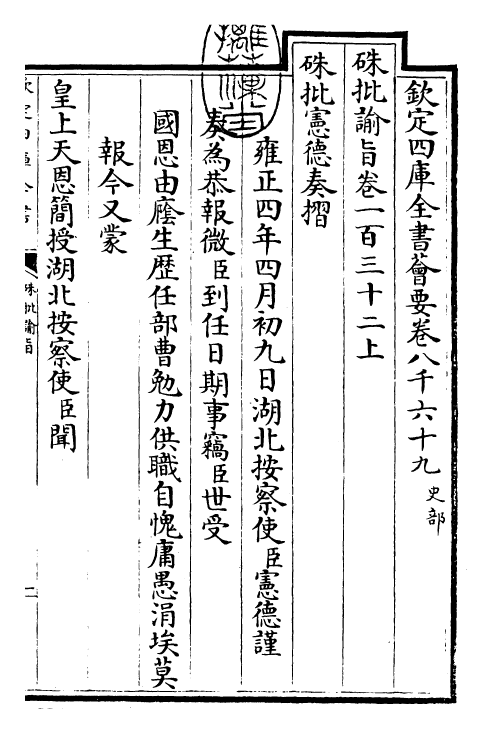 欽定四庫全書薈要卷八千六十九 史部
硃批諭旨卷一百三十二上
硃批憲德奏摺
雍正四年四月初九日湖北按察使臣憲德謹
奏為恭報微臣到任日期事竊臣世受
國恩由廕生歷任部曹勉力供職自愧庸愚涓埃莫
報今又蒙
皇上天恩簡授湖北按察使臣聞
硃批諭旨